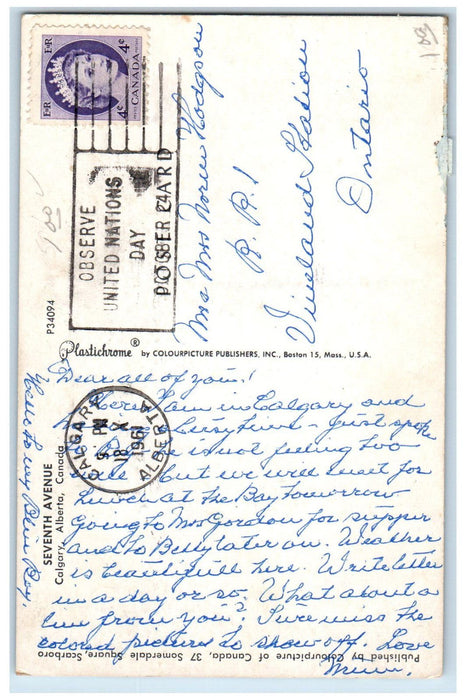 E II R
E II R
4¢
4¢
CANADA
OBSERVE
UNITED NATIONS
DAY
OCTOBER 24
POST CARD
Norm Hodgson
R. R. 1
Vineland Station
Ontario
P34094
Plastichrome ® by COLOURPICTURE PUBLISHERS, INC., Boston 15, Mass., U.S.A.
CALGARY
PM
18 X
1961
ALBERTA
SEVENTH AVENUE
Calgary, Alberta, Canada
Dear all of you!
Here I am in Calgary and
busy time - just spoke
is not feeling too
but we will meet for
lunch at the Bay tomorrow
Going to Mrs Gordon for supper
and to Betty later on. Weather
is beautifull here. Write letter
in a day or so. What about a
line from you? I sure miss the
colored pictures to show off. Love
Mum.
Hello to my Blue Boy.
Published by Colourpicture of Canada, 37 Somerdale Square, Scarboro